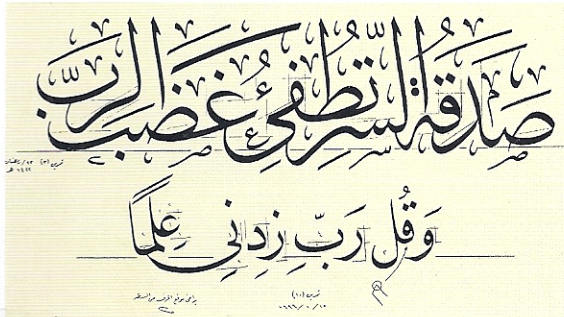 صَدَقَةُ السِّرِّ تُطْفِئُ غَضَبَ الرَّبِّ
وَقُل رَبِّ زِدنِي عِلمًا